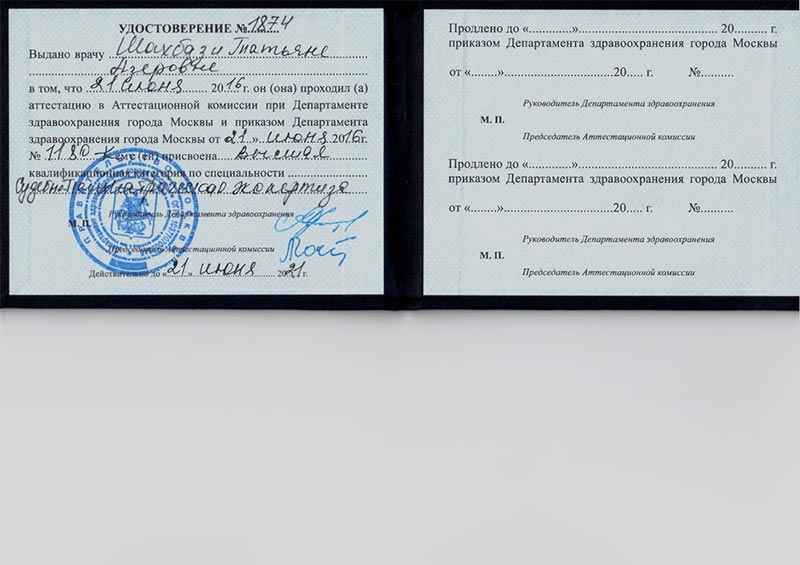 УДОСТОВЕРЕНИЕ № 1874
Выдано врачу Шахбази Татьяне
Азеровне
в том, что 21 июня 2016 г. он (она) проходил (а)
аттестацию в Аттестационной комиссии при Департаменте
здравоохранения города Москвы и приказом Департамента
здравоохранения города Москвы от 21 » июня 2016 г.
№ 1180-к ему (ей) присвоена высшая
квалификационная категория по специальности
Судебно-психиатрическая экспертиза
Руководитель Департамента здравоохранения
М. П.
Председатель Аттестационной комиссии
Действительно до « 21 » июня 2021 г.
ПРАВИТЕЛЬСТВО МОСКВЫ
Продлено до «.............»........................................... 20.......... г.
приказом Департамента здравоохранения города Москвы
от «........»................................... 20..... г. №..........
Руководитель Департамента здравоохранения
М. П.
Председатель Аттестационной комиссии
Продлено до «.............»........................................... 20.......... г.
приказом Департамента здравоохранения города Москвы
от «........»................................... 20..... г. №..........
Руководитель Департамента здравоохранения
М. П.
Председатель Аттестационной комиссии